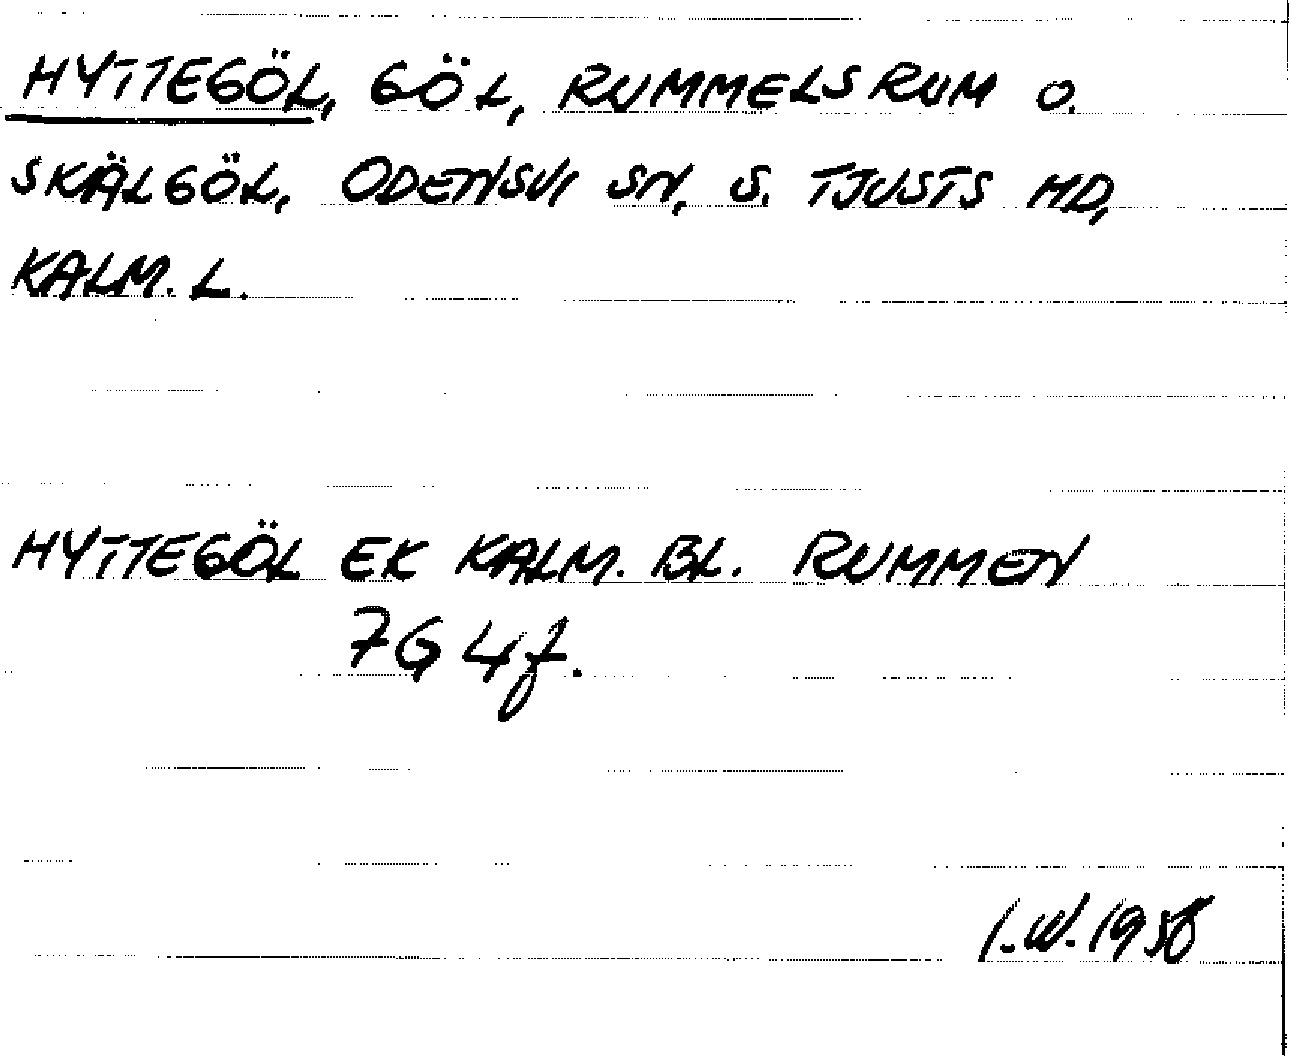 HYTTEGÖL, GÖL, RUMMELSRUM O.
SKÄLGÖL, ODENSVI SN, S. TJUSTS HD,
KALM. L.
HYTTEGÖL EK KALM. BL. RUMMEN
7G 4f.
I.W. 1956